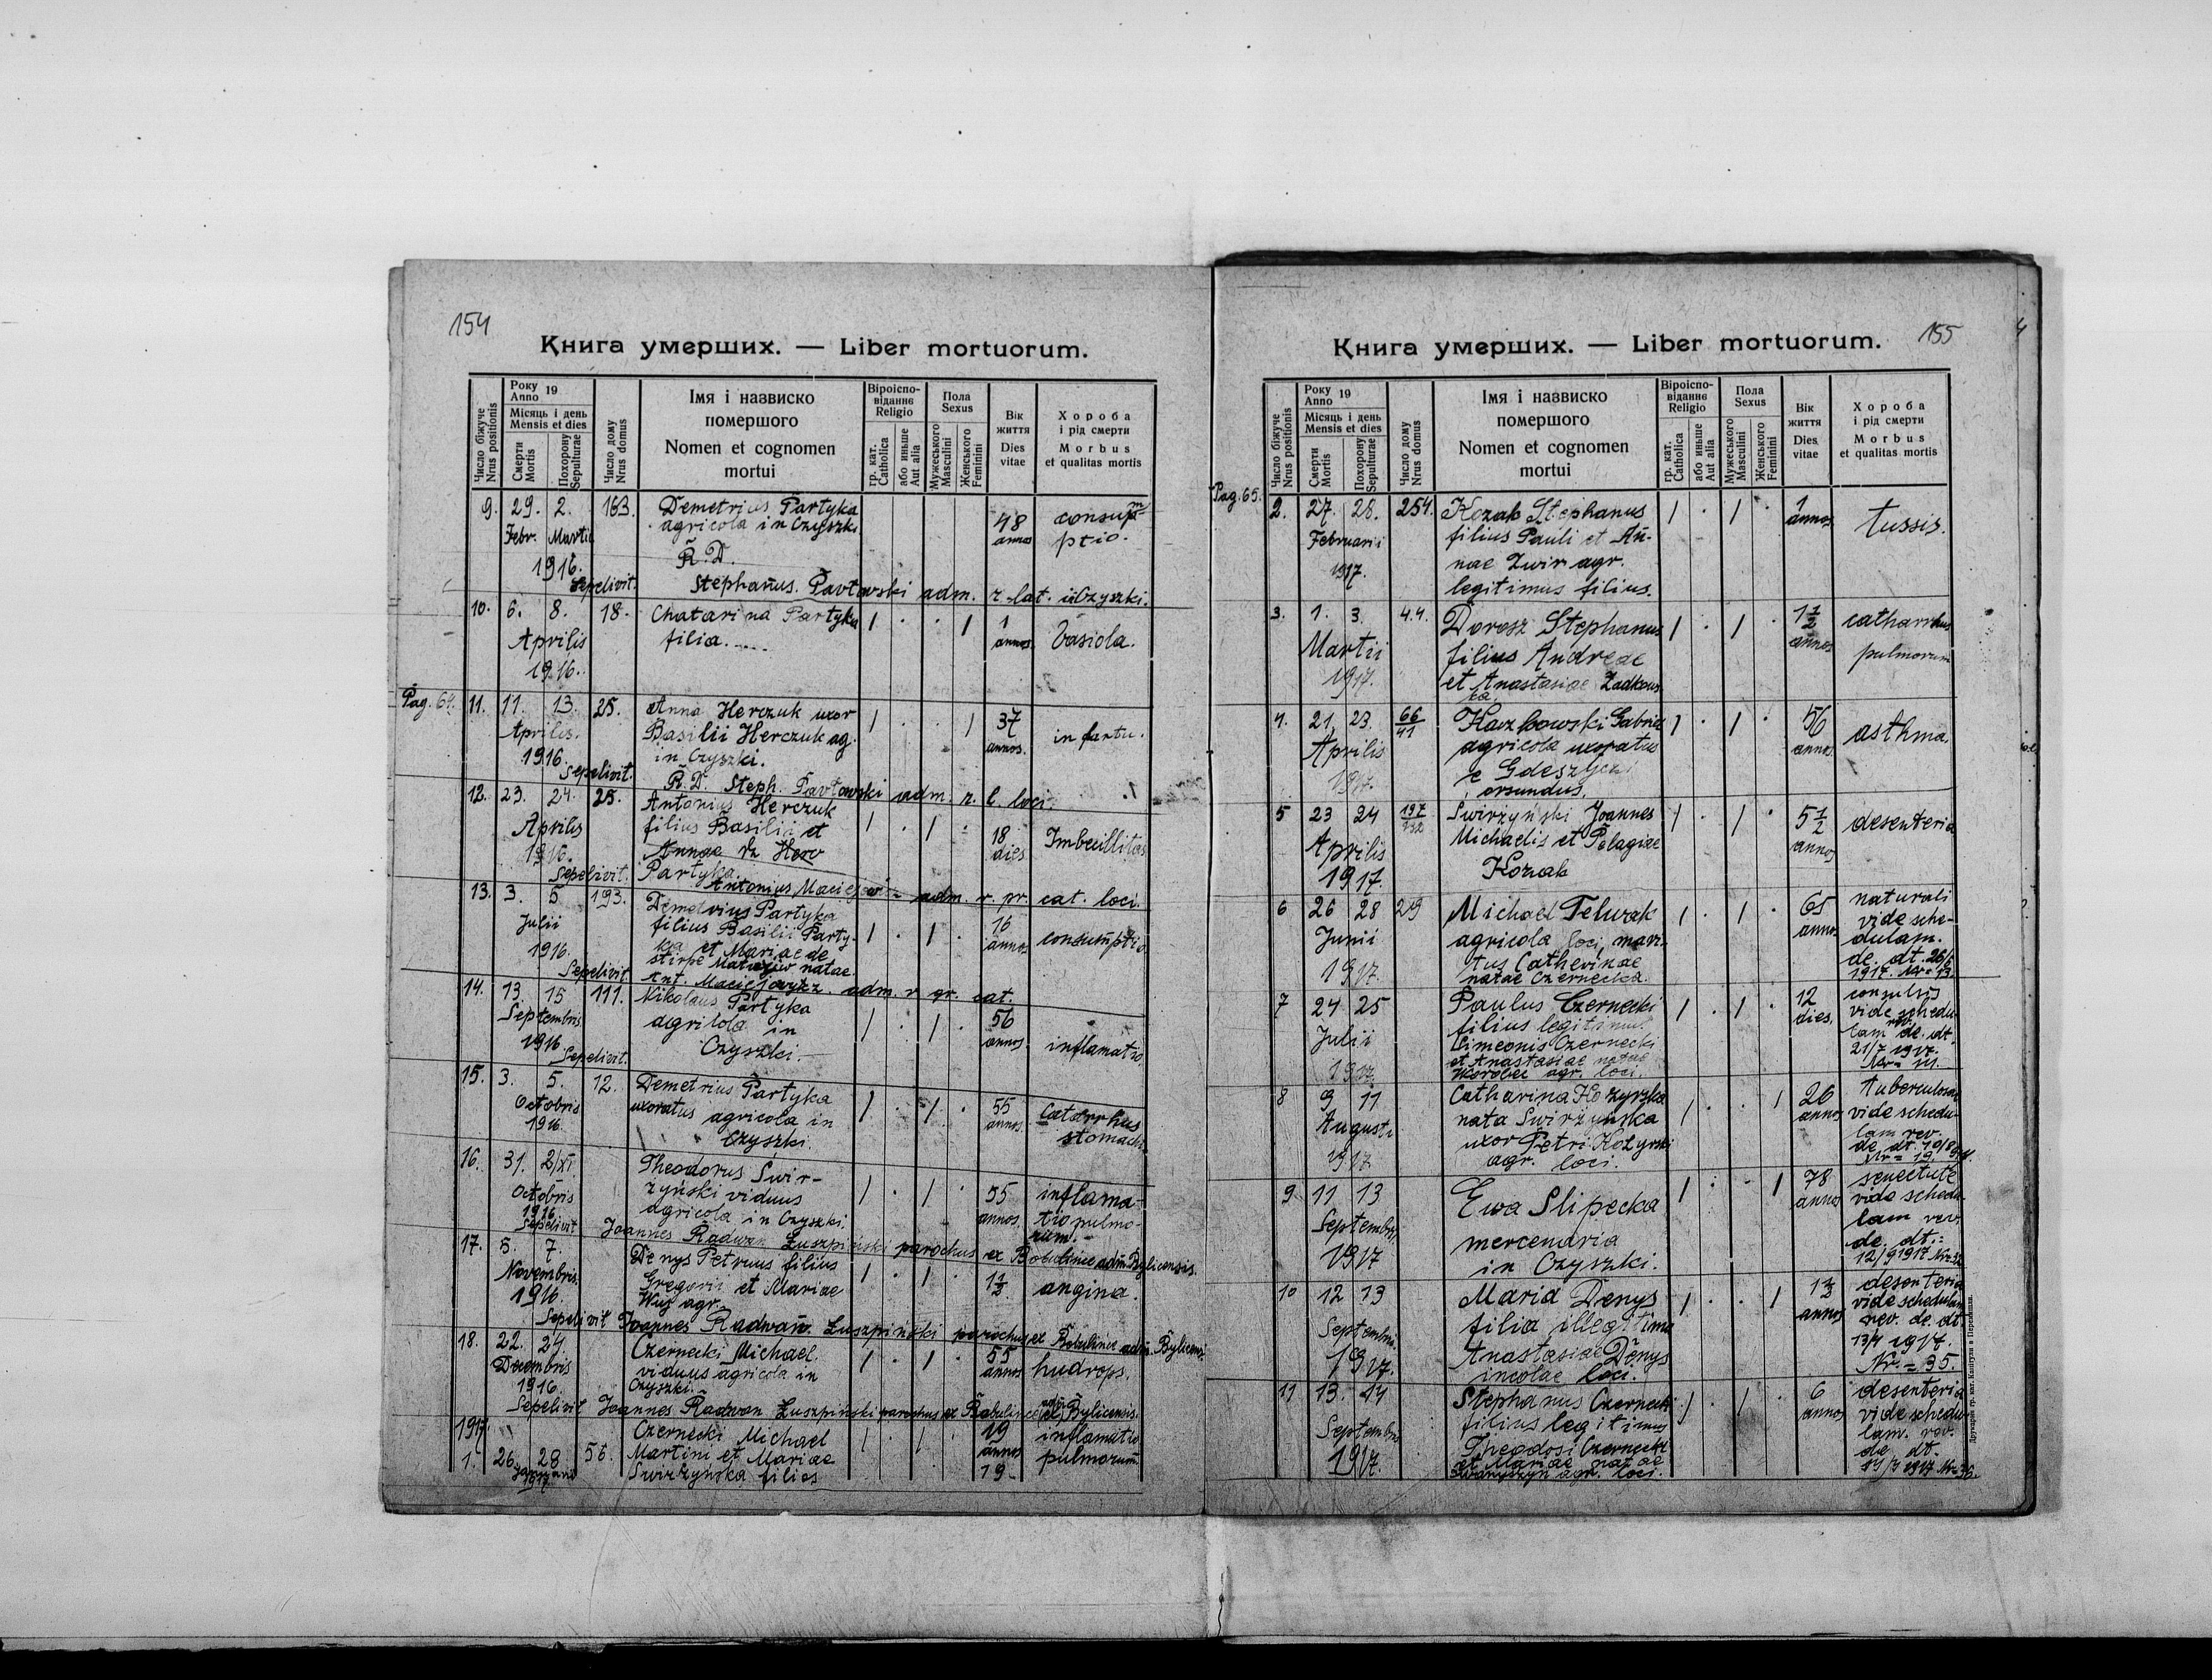 154
Книга умерших. — Liber mortuorum.
Число біжуче Nrus positionis
Року Anno 19
Місяць і день Mensis et dies
Смерти Mortis
Похорону Sepulturae
Число дому Nrus domus
Імя і назвиско помершого
Nomen et cognomen mortui
Віроісповіданнє Religio
гр. кат. Catholica
або иньше Aut alia
Пола Sexus
Мужеського Masculini
Женського Feminini
Вік життя Dies vitae
Хороба і рід смерти
Morbus et qualitas mortis
9. 29. 2. 163. Demetrius Partyka
agricola in Czyszki 48 consum
Febr. Martii annos ptio.
1916. R. D.
Sepelivit. Stephanus. Pavtowski adm. r. lat. Czyszki.
10. 6. 8. 18. Chatarina Partyka / . . / 1
Aprilis filia. annos.
1916.
Pag. 64. 11. 11. 13. 25. Anna Herczuk uxor / . . / 37
Aprilis. Basilii Herczuk ag. annos. in partu.
1916. in Czyszki.
Sepelivit. R. D. Steph. Pavtowski adm. r. l. loci.
12. 23. 24. 25. Antonius Herczuk
Aprilis filius Basilii et / . / . 18 Imbecillitas
1916. Annae Herc dies
Sepelivit. Partyka.
Antonius adm. r. gr. cat. loci.
13. 3. 5 193. Demetrius Partyka
Julii filius Basilii Party- / . / . 16 consumptio
1916. ka et Mariae de annos
stirpe natae.
Sepelivit. Ant. adm. r. gr. cat.
14. 13 15 111. Nikolaus Partyka
Septembris agricola in / . / . 56
1916 Czyszki. annos. inflamatio
Sepelivit.
15. 3. 5. 12. Demetrius Partyka
Octobris uxoratus agricola in / . / . 55 Catarrhus
1916. Czyszki. annos. stomachi
16. 31. 2/XI Theodorus Swir-
Octobris żyński viduus / . / . 55 inflama-
1916. agricola in Czyszki. annos. tio pulmo-
Sepelivit Joannes Radwan Łuszpiński parochus ex rum.
17. 5. 7. Denys Petrus filius
Novembris. Gregorii et Mariae / . / . 1½ angina.
1916. agr.
Sepelivit Joannes Radwan Łuszpiński parochus ex adm. Bylicensis
18. 22. 24. Czernecki Michael.
Decembris viduus agricola in / . / . 55 hudrops.
1916. Czyszki. annos
Sepelivit Joannes Radwan Łuszpiński parochus ex Bylicensis.
1917. Czernecki Michael 19 inflamatio
1. 26. 28 56. Martini et Mariae / . / . annos pulmorum.
Januarii Swirżyńska filios 19-
1917.
155
Книга умерших. — Liber mortuorum.
Число біжуче Nrus positionis
Року Anno 19
Місяць і день Mensis et dies
Смерти Mortis
Похорону Sepulturae
Число дому Nrus domus
Імя і назвиско помершого
Nomen et cognomen mortui
Віроісповіданнє Religio
гр. кат. Catholica
або иньше Aut alia
Пола Sexus
Мужеського Masculini
Женського Feminini
Вік життя Dies vitae
Хороба і рід смерти
Morbus et qualitas mortis
Pag. 65. 2. 27. 28. 254. Kozak Stephanus / . / . 1
Februarii filius Pauli et An- annos tussis.
1917. nae Zwir agr.
legitimus filius.
3. 1. 3. 44. Dorosz Stephanus / . / . 1½ catharrhus
Martii filius Andreae annos pulmorum
1917. et Anastasiae
4. 21. 23. 66/41 Gabriel / . / . 56
Aprilis agricola uxoratus annos asthma.
1917. e
5 23 24 Swirżyński Joannes / . / . 5½ desenteria
Aprilis Michaelis et Pelagiae annos
1917. Kozak
6 26 28 219 Michael Telwak / . / . 65 naturali
Junii agricola loci, mari- annos vide sche-
1917. tus Catherinae dulam.
natae Czernecka. de. dt. 26/6
1917. Nr= 13
7 24 25 Paulus Czernecki / . / . 12
Julii filius legitimus dies. vide schedu-
1917 Simeonis Czernecki lam rev. de. dt.
et Anastasiae natae 21/7 1917.
agr. loci.
8 9 11 Catharina / . . / 26 Tuberculosa
Augusti nata Swirżyńska annos vide schedu-
1917 uxor Petri lam rev.
agr. loci. de. dt. 10/8
Nr= 19.
9 11 13 Ewa Slipecka / . . / 78 senectute
Septembris mercenaria annos vide schedu-
1917 in Czyszki. lam rev.
de. dt.:
12/9 1917
10 12 13 Maria Denys / . . / desenteria
Septembris filia illegitima annos vide schedulam
1917. Anastasiae Denys rev. de. dt.
incolae loci. 1917.
Nr. = 35.
11 13. 14 Stephanus Czernecki / . / . 6 desenteria
Septembris filius legitimus annos vide schedu-
1917. Theodosi Czernecki lam. rev.
et Mariae natae de. dt.
agr. loci. 1917 Nr=36.
Друкарня гр. кат. Капітула в Перемишли.